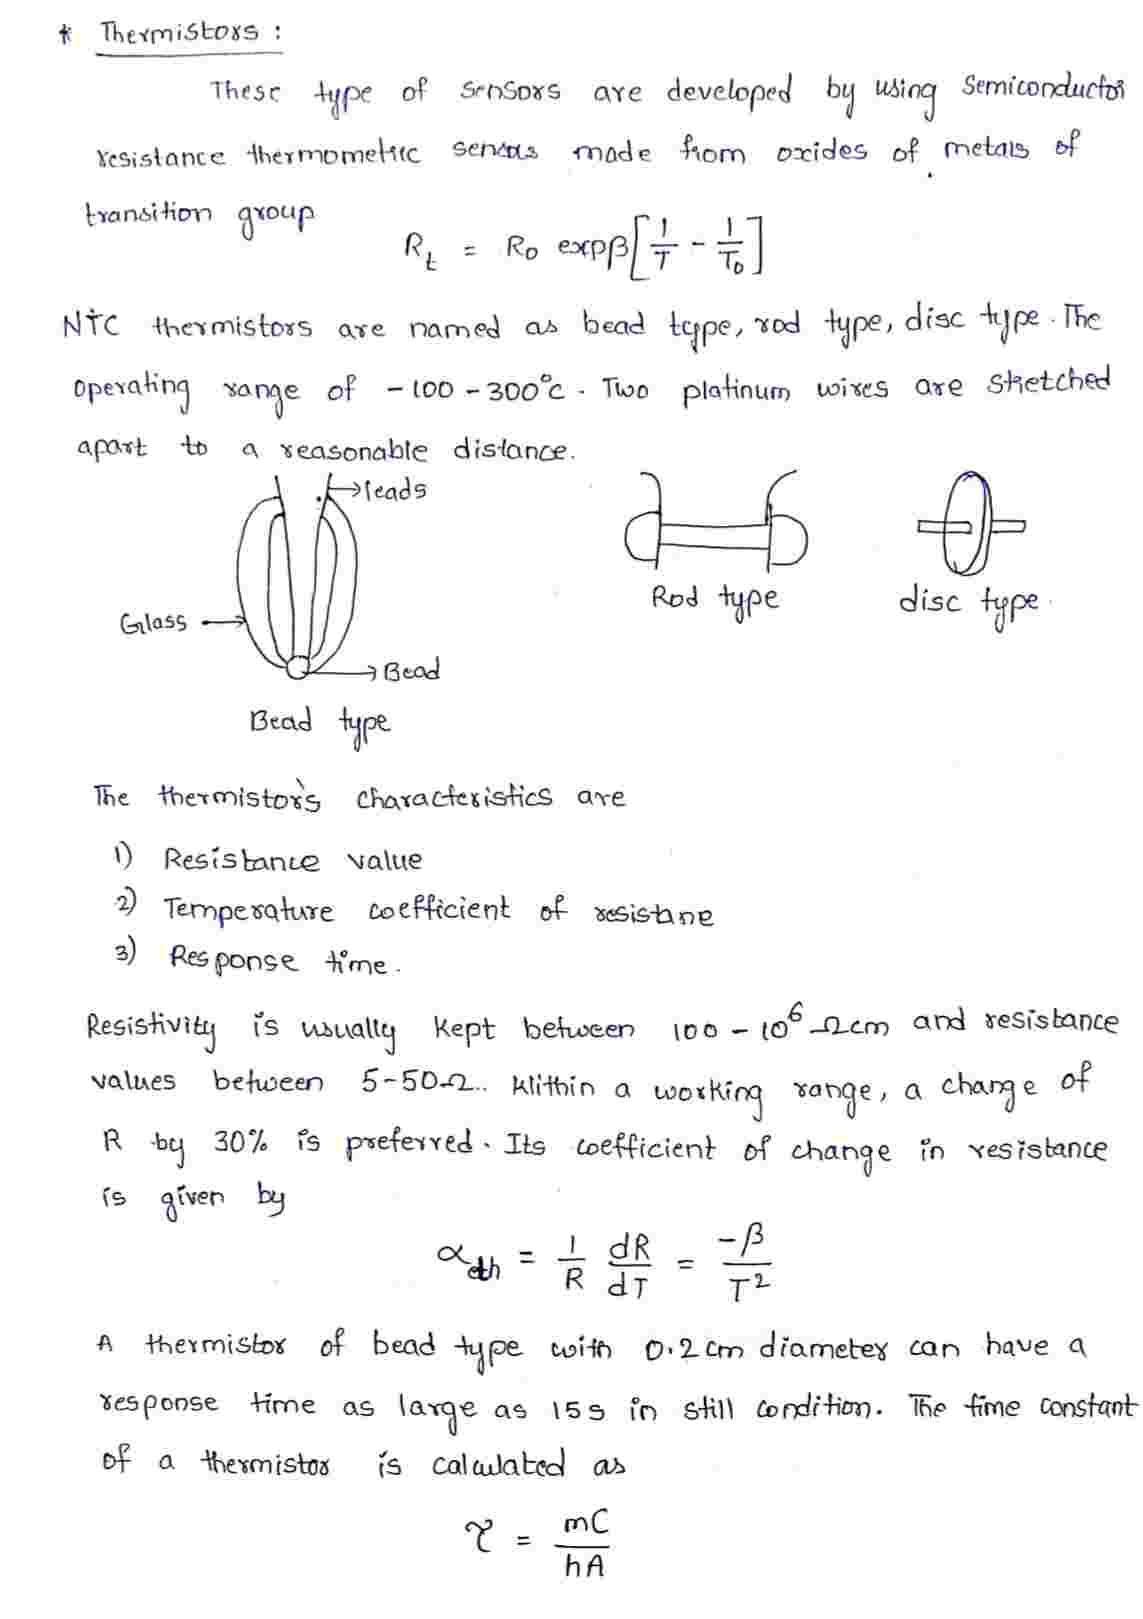 * Thermistors :
These type of sensors are developed by using Semiconductor
resistance thermometric sensors made from oxides of metals of
transition group
R_t = R_0 exp β [1/T - 1/T_0]
NTC thermistors are named as bead type, rod type, disc type. The
operating range of -100 - 300°c. Two platinum wires are stretched
apart to a reasonable distance.
leads
Glass
Bead
Bead type
Rod type
disc type.
The thermistor's characteristics are
1) Resistance value
2) Temperature coefficient of resistane
3) Response time.
Resistivity is usually kept between 100 - 10^6 Ωcm and resistance
values between 5-50Ω.. Within a working range, a change of
R by 30% is preferred. Its coefficient of change in resistance
is given by
α_th = 1/R dR/dT = -β/T^2
A thermistor of bead type with 0.2cm diameter can have a
response time as large as 15s in still condition. The time constant
of a thermistor is calculated as
τ = mC/hA